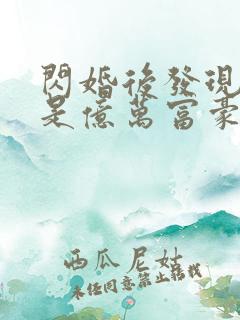 閃婚後發現
是億萬富豪
西瓜尼姑
未任同意禁止轉載